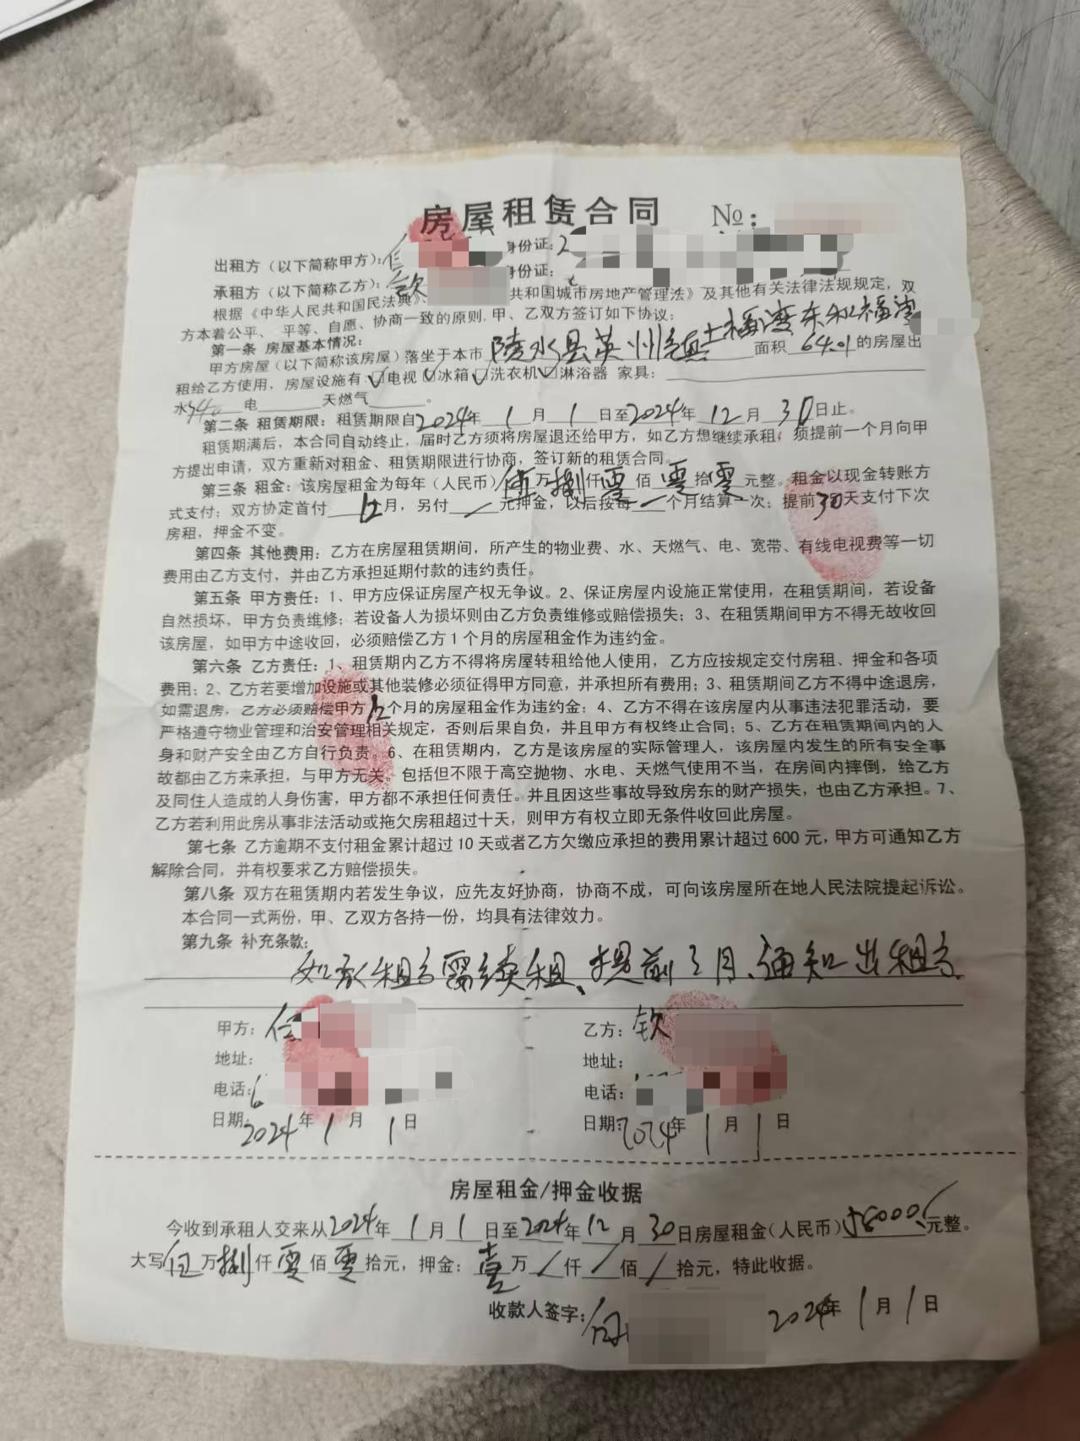 房屋租赁合同 №:
出租方（以下简称甲方）: 身份证:2
承租方（以下简称乙方）:钦 身份证:
根据《中华人民共和国民法典》 共和国城市房地产管理法》及其他有关法律法规规定，双
方本着公平、平等、自愿、协商一致的原则.甲、乙双方签订如下协议:
第一条 房屋基本情况:
甲方房屋（以下简称该房屋）落坐于本市 陵水县英州镇 面积 64.01 的房屋出
租给乙方使用，房屋设施有:☑电视☑冰箱☑洗衣机☑淋浴器 家具:
水 电 天燃气 。
第二条 租赁期限: 租赁期限自2024年 1 月 1 日至2024年 12 月 30日止。
租赁期满后，本合同自动终止，届时乙方须将房屋退还给甲方，如乙方想继续承租，须提前一个月向甲
方提出申请，双方重新对租金、租赁期限进行协商，签订新的租赁合同。
第三条 租金: 该房屋租金为每年（人民币）伍万捌仟零佰零拾零元整。租金以现金转账方
式支付; 双方协定首付 12月，另付 / 元押金，以后按每 个月结算一次; 提前30天支付下次
房租，押金不变。
第四条 其他费用: 乙方在房屋租赁期间，所产生的物业费、水、天燃气、电、宽带、有线电视费等一切
费用由乙方支付，并由乙方承担延期付款的违约责任。
第五条 甲方责任: 1、甲方应保证房屋产权无争议。2、保证房屋内设施正常使用，在租赁期间，若设备
自然损坏，甲方负责维修; 若设备人为损坏则由乙方负责维修或赔偿损失; 3、在租赁期间甲方不得无故收回
该房屋，如甲方中途收回，必须赔偿乙方1个月的房屋租金作为违约金。
第六条 乙方责任: 1、租赁期内乙方不得将房屋转租给他人使用，乙方应按规定交付房租、押金和各项
费用; 2、乙方若要增加设施或其他装修必须征得甲方同意，并承担所有费用; 3、租赁期间乙方不得中途退房，
如需退房，乙方必须赔偿甲方12个月的房屋租金作为违约金; 4、乙方不得在该房屋内从事违法犯罪活动，要
严格遵守物业管理和治安管理相关规定，否则后果自负，并且甲方有权终止合同; 5、乙方在租赁期间内的人
身和财产安全由乙方自行负责。6、在租赁期内，乙方是该房屋的实际管理人，该房屋内发生的所有安全事
故都由乙方来承担，与甲方无关。包括但不限于高空抛物、水电、天燃气使用不当，在房间内摔倒，给乙方
及同住人造成的人身伤害，甲方都不承担任何责任。并且因这些事故导致房东的财产损失，也由乙方承担。7、
乙方若利用此房从事非法活动或拖欠房租超过十天，则甲方有权立即无条件收回此房屋。
第七条 乙方逾期不支付租金累计超过10天或者乙方欠缴应承担的费用累计超过600元，甲方可通知乙方
解除合同，并有权要求乙方赔偿损失。
第八条 双方在租赁期内若发生争议，应先友好协商，协商不成，可向该房屋所在地人民法院提起诉讼。
本合同一式两份，甲、乙双方各持一份，均具有法律效力。
第九条 补充条款:
如承租方需续租、提前3月、通知出租方
甲方: 乙方: 钦
地址: 地址:
电话: 电话:
日期:2024年 1 月 1 日 日期:2024年 1 月 1 日
房屋租金/押金收据
今收到承租人交来从2024年 1 月 1 日至2024年 12 月 30日房屋租金(人民币) 58000 元整。
大写伍万捌仟零佰零拾元，押金: 壹万 / 仟 / 佰 / 拾元，特此收据。
收款人签字: 2024年 1 月 1 日